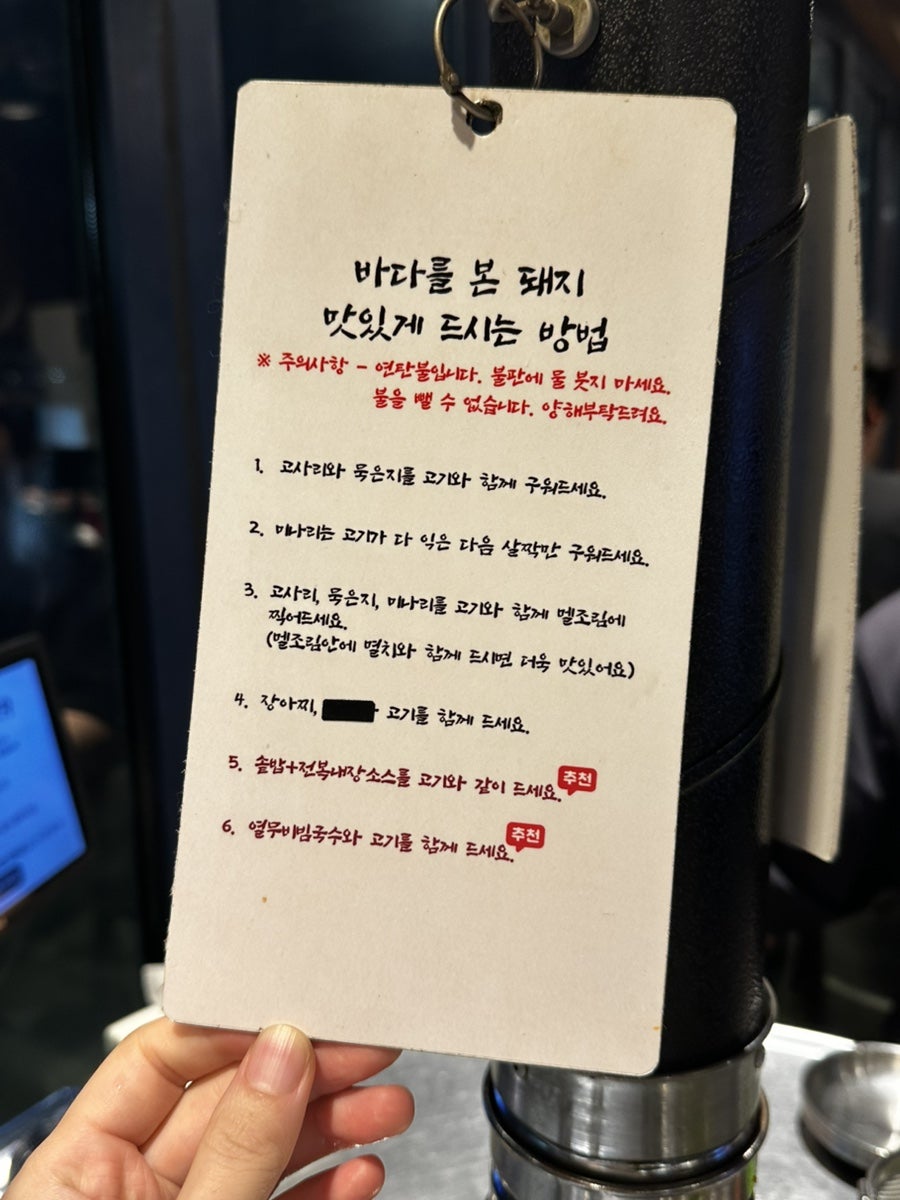 바다를 본 돼지
맛있게 드시는 방법
※ 주의사항 - 연탄불입니다. 불판에 물 붓지 마세요.
불을 뺄 수 없습니다. 양해부탁드려요.
1. 고사리와 묵은지를 고기와 함께 구워드세요.
2. 미나리는 고기가 다 익은 다음 살짝만 구워드세요.
3. 고사리, 묵은지, 미나리를 고기와 함께 멜조림에
찍어드세요.
(멜조림안에 멸치와 함께 드시면 더욱 맛있어요)
4. 장아찌, 고기를 함께 드세요.
5. 솥밥+전복내장소스를 고기와 같이 드세요. 추천
6. 열무비빔국수와 고기를 함께 드세요. 추천